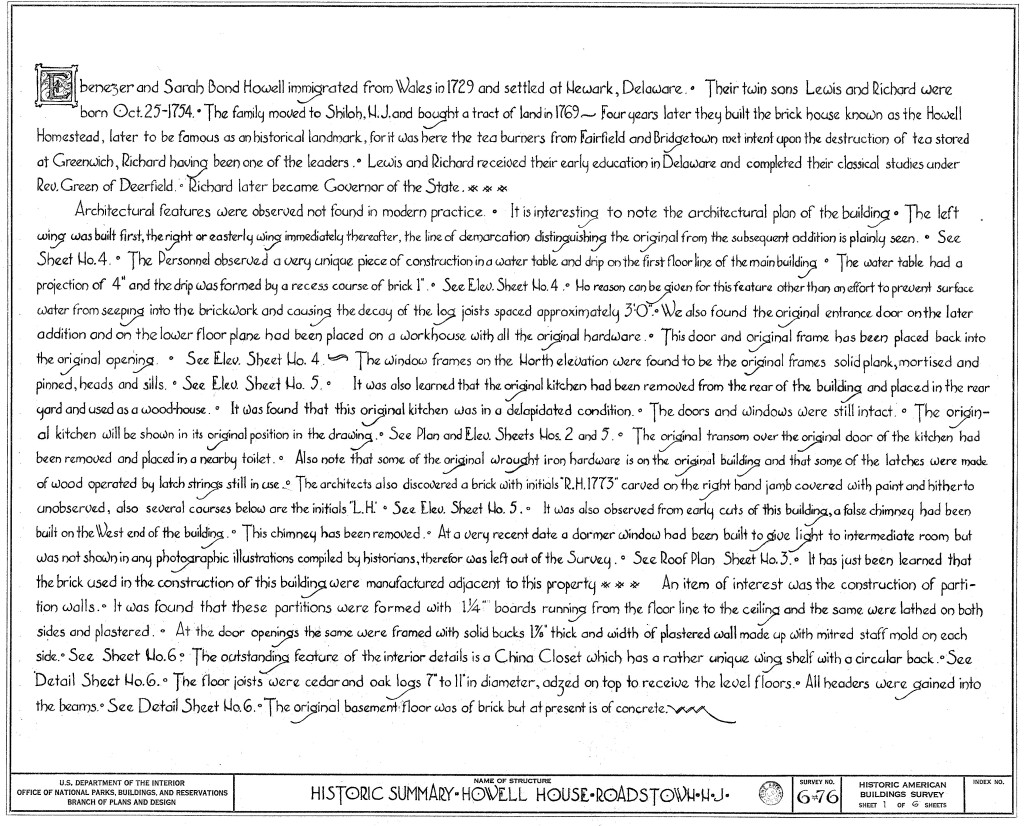 Ebenezer and Sarah Bond Howell immigrated from Wales in 1729 and settled at Newark, Delaware. • Their twin sons Lewis and Richard were
born Oct. 25-1754. • The family moved to Shiloh, N.J. and bought a tract of land in 1769 ~ Four years later they built the brick house known as the Howell
Homestead, later to be famous as an historical landmark, for it was here the tea burners from Fairfield and Bridgetown met intent upon the destruction of tea stored
at Greenwich, Richard having been one of the leaders. • Lewis and Richard received their early education in Delaware and completed their classical studies under
Rev. Green of Deerfield. • Richard later became Governor of the State. * * *
Architectural features were observed not found in modern practice. • It is interesting to note the architectural plan of the building • The left
wing was built first, the right or easterly wing immediately thereafter, the line of demarcation distinguishing the original from the subsequent addition is plainly seen. • See
Sheet No. 4. • The Personnel observed a very unique piece of construction in a water table and drip on the first floor line of the main building • The water table had a
projection of 4" and the drip was formed by a recess course of brick 1". • See Elev. Sheet No. 4. • No reason can be given for this feature other than an effort to prevent surface
water from seeping into the brickwork and causing the decay of the log joists spaced approximately 3'0". • We also found the original entrance door on the later
addition and on the lower floor plane had been placed on a workhouse with all the original hardware. • This door and original frame has been placed back into
the original opening. • See Elev. Sheet No. 4. ~ The window frames on the North elevation were found to be the original frames solid plank, mortised and
pinned, heads and sills. • See Elev. Sheet No. 5. • It was also learned that the original kitchen had been removed from the rear of the building and placed in the rear
yard and used as a wood-house. • It was found that this original kitchen was in a delapidated condition. • The doors and windows were still intact. • The origin-
al kitchen will be shown in its original position in the drawing. • See Plan and Elev. Sheets Nos. 2 and 5. • The original transom over the original door of the kitchen had
been removed and placed in a nearby toilet. • Also note that some of the original wrought iron hardware is on the original building and that some of the latches were made
of wood operated by latch strings still in use. • The architects also discovered a brick with initials "R.H. 1773" carved on the right hand jamb covered with paint and hitherto
unobserved, also several courses below are the initials "L.H." • See Elev. Sheet No. 5. • It was also observed from early cuts of this building, a false chimney had been
built on the West end of the building. • This chimney has been removed. • At a very recent date a dormer window had been built to give light to intermediate room but
was not shown in any photographic illustrations compiled by historians, therefor was left out of the Survey. • See Roof Plan Sheet No. 3. • It has just been learned that
the brick used in the construction of this building were manufactured adjacent to this property * * * An item of interest was the construction of parti-
tion walls. • It was found that these partitions were formed with 1¼" boards running from the floor line to the ceiling and the same were lathed on both
sides and plastered. • At the door openings the same were framed with solid bucks 1⅞" thick and width of plastered wall made up with mitred staff mold on each
side. • See Sheet No. 6 • The outstanding feature of the interior details is a China Closet which has a rather unique wing shelf with a circular back. • See
Detail Sheet No. 6. • The floor joists were cedar and oak logs 7" to 11" in diameter, adzed on top to receive the level floors. • All headers were gained into
the beams. • See Detail Sheet No. 6. • The original basement floor was of brick but at present is of concrete.
U.S. DEPARTMENT OF THE INTERIOR
OFFICE OF NATIONAL PARKS, BUILDINGS, AND RESERVATIONS
BRANCH OF PLANS AND DESIGN
NAME OF STRUCTURE
HISTORIC SUMMARY • HOWELL HOUSE • ROADSTOWN • N • J •
SURVEY NO.
6-76
HISTORIC AMERICAN
BUILDINGS SURVEY
SHEET 1 OF 6 SHEETS
INDEX NO.